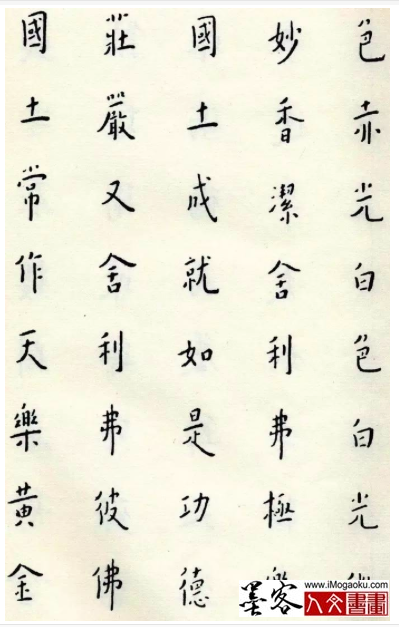 色赤光白色白光
妙香潔舍利弗極
國土成就如是功德
莊嚴又舍利弗彼佛
國土常作天樂黃金
墨客
www.iMogaoku.com
人文書畫